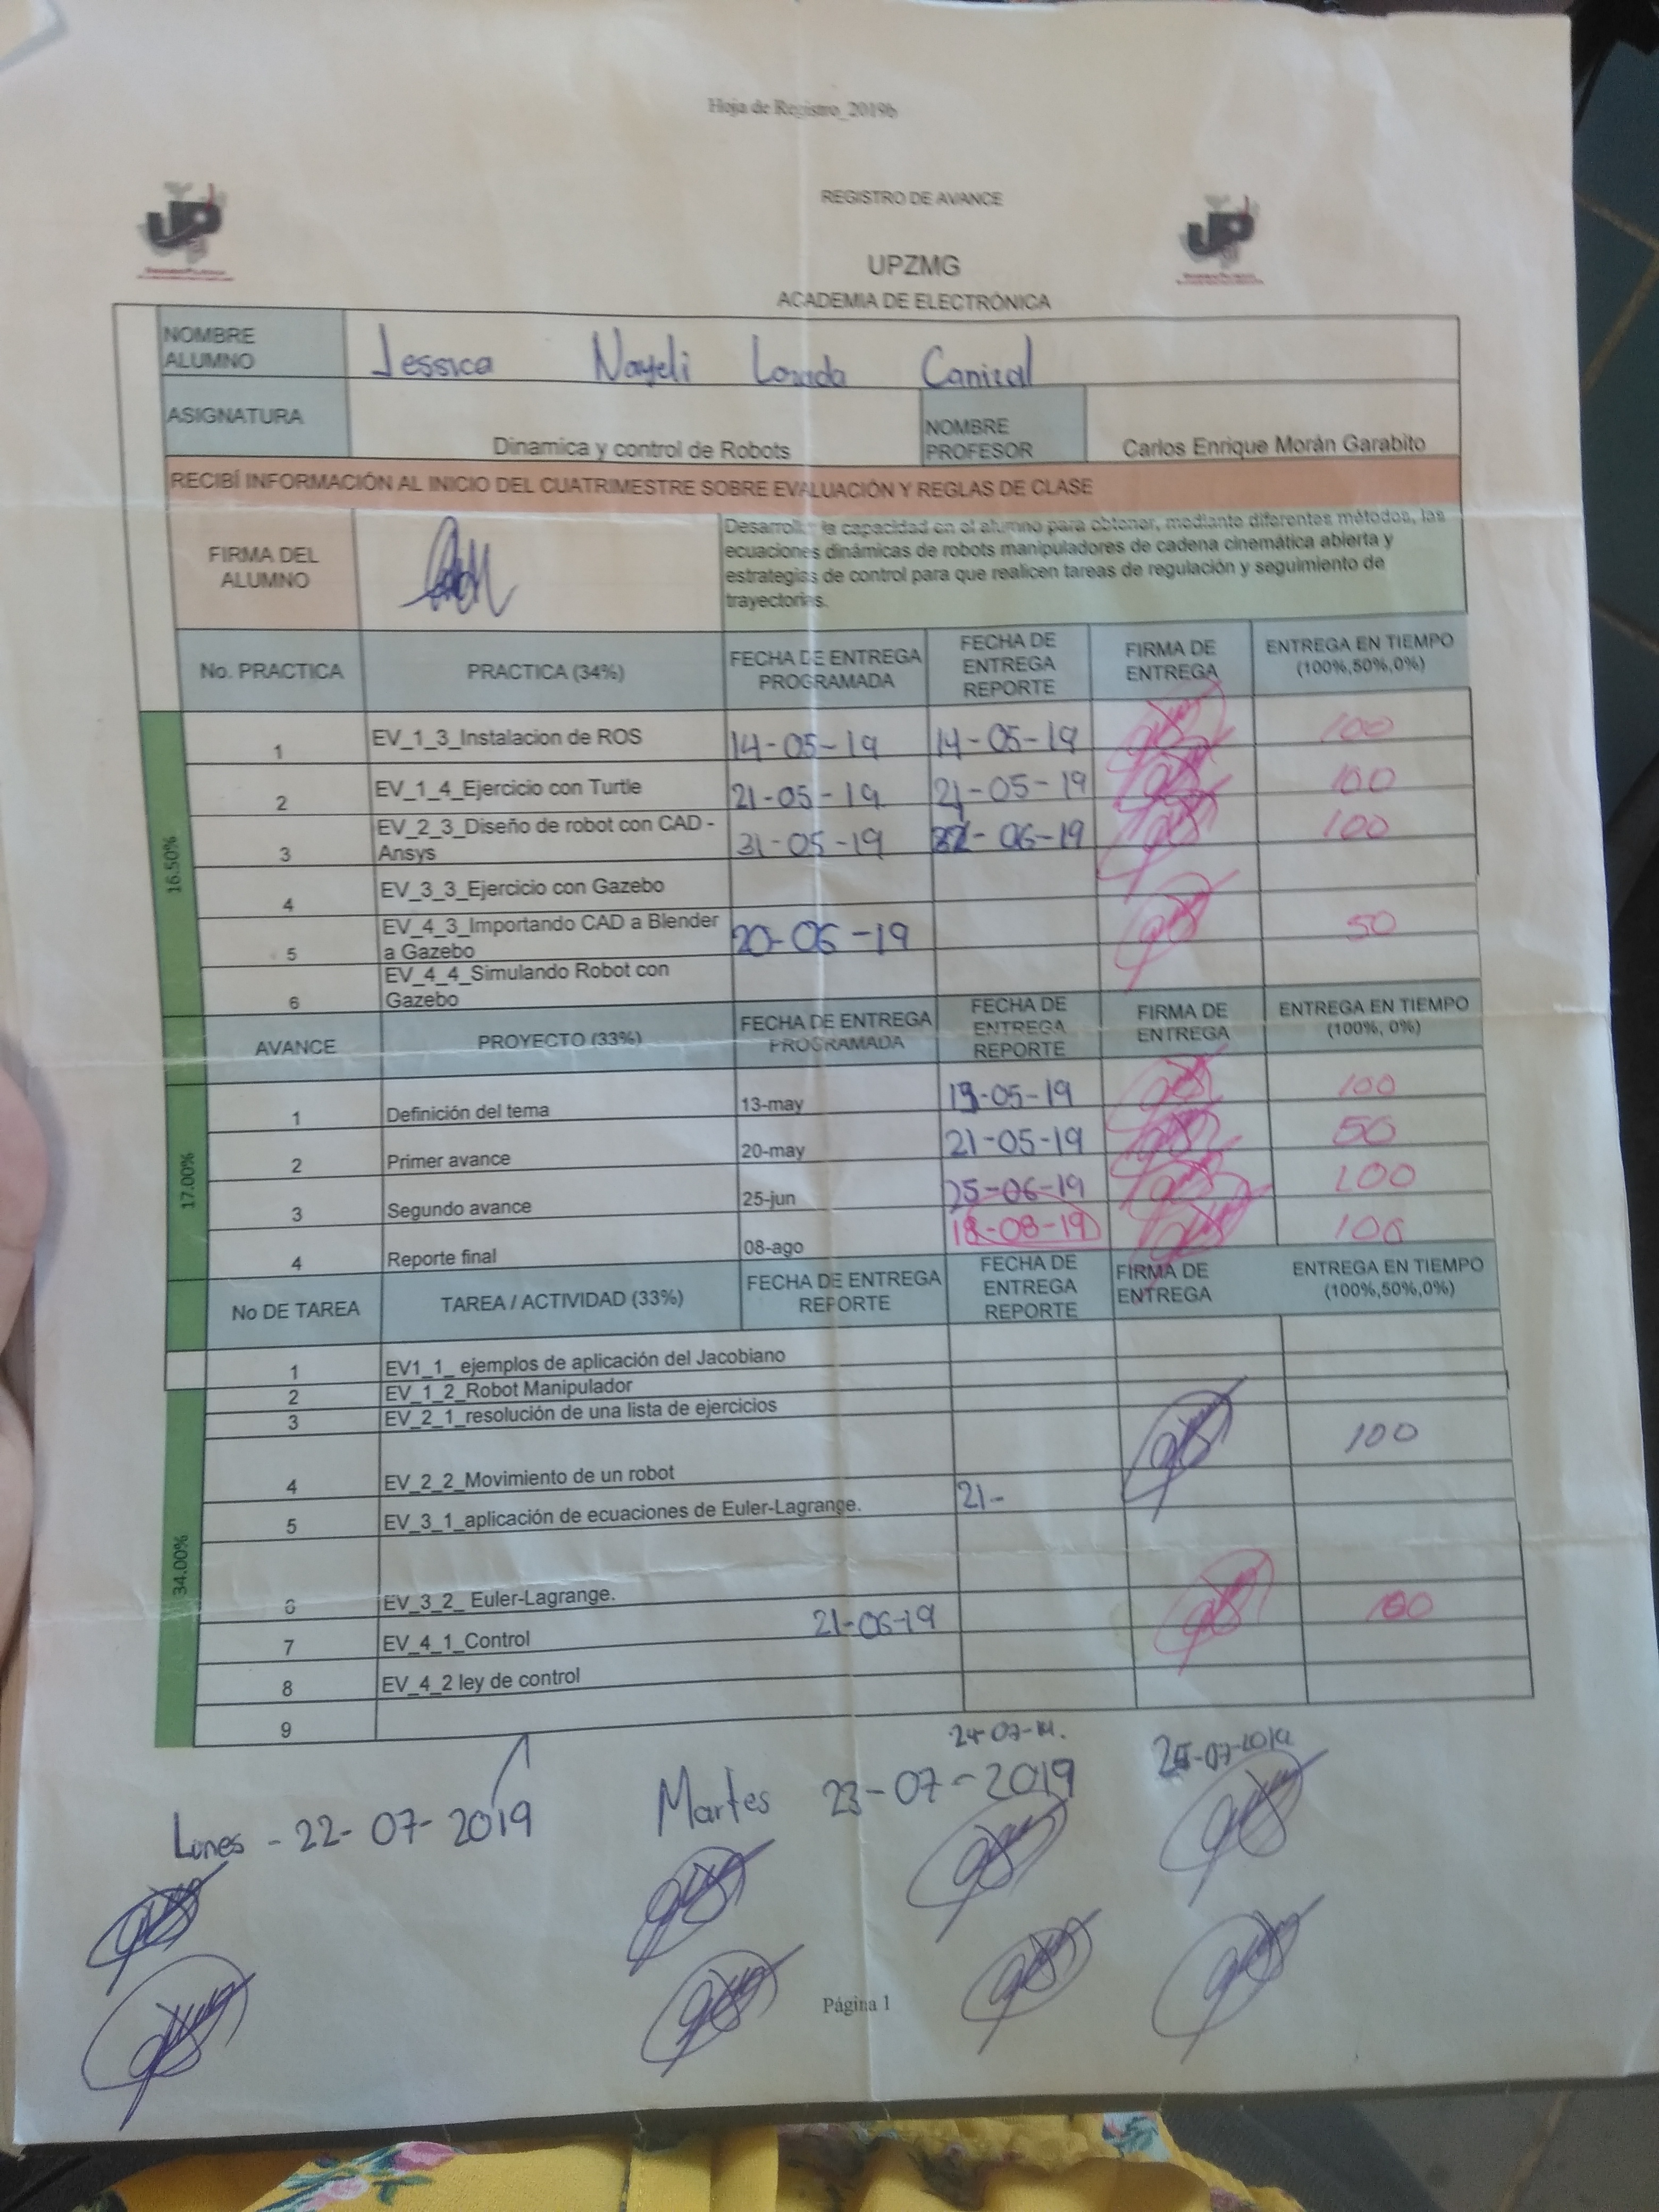 Hoja de Registro_2019b
REGISTRO DE AVANCE
UPZMG
ACADEMIA DE ELECTRÓNICA
NOMBRE ALUMNO Jessica Nayeli Lozada Canizal
ASIGNATURA Dinamica y control de Robots NOMBRE PROFESOR Carlos Enrique Morán Garabito
RECIBÍ INFORMACIÓN AL INICIO DEL CUATRIMESTRE SOBRE EVALUACIÓN Y REGLAS DE CLASE
FIRMA DEL ALUMNO
Desarrollar la capacidad en el alumno para obtener, mediante diferentes métodos, las
ecuaciones dinámicas de robots manipuladores de cadena cinemática abierta y
estrategias de control para que realicen tareas de regulación y seguimiento de
trayectorias.
No. PRACTICA PRACTICA (34%) FECHA DE ENTREGA PROGRAMADA FECHA DE ENTREGA REPORTE FIRMA DE ENTREGA ENTREGA EN TIEMPO (100%,50%,0%)
16.50%
1 EV_1_3_Instalacion de ROS 14-05-19 14-05-19 100
2 EV_1_4_Ejercicio con Turtle 21-05-19 21-05-19 100
3 EV_2_3_Diseño de robot con CAD - Ansys 31-05-19 -06-19 100
4 EV_3_3_Ejercicio con Gazebo
5 EV_4_3_Importando CAD a Blender a Gazebo 20-06-19 50
6 EV_4_4_Simulando Robot con Gazebo
AVANCE PROYECTO (33%) FECHA DE ENTREGA PROGRAMADA FECHA DE ENTREGA REPORTE FIRMA DE ENTREGA ENTREGA EN TIEMPO (100%, 0%)
17.00%
1 Definición del tema 13-may 13-05-19 100
2 Primer avance 20-may 21-05-19 50
3 Segundo avance 25-jun 25-06-19 100
4 Reporte final 08-ago 18-08-19 100
No DE TAREA TAREA / ACTIVIDAD (33%) FECHA DE ENTREGA REPORTE FECHA DE ENTREGA REPORTE FIRMA DE ENTREGA ENTREGA EN TIEMPO (100%,50%,0%)
34.00%
1 EV1_1_ ejemplos de aplicación del Jacobiano
2 EV_1_2_Robot Manipulador
3 EV_2_1_resolución de una lista de ejercicios
4 EV_2_2_Movimiento de un robot 100
5 EV_3_1_aplicación de ecuaciones de Euler-Lagrange. 21-
6 EV_3_2_ Euler-Lagrange.
7 EV_4_1_Control 21-06-19 100
8 EV_4_2 ley de control
9
24-07-19.
25-07-2019
Lunes - 22-07-2019
Martes 23-07-2019
Página 1